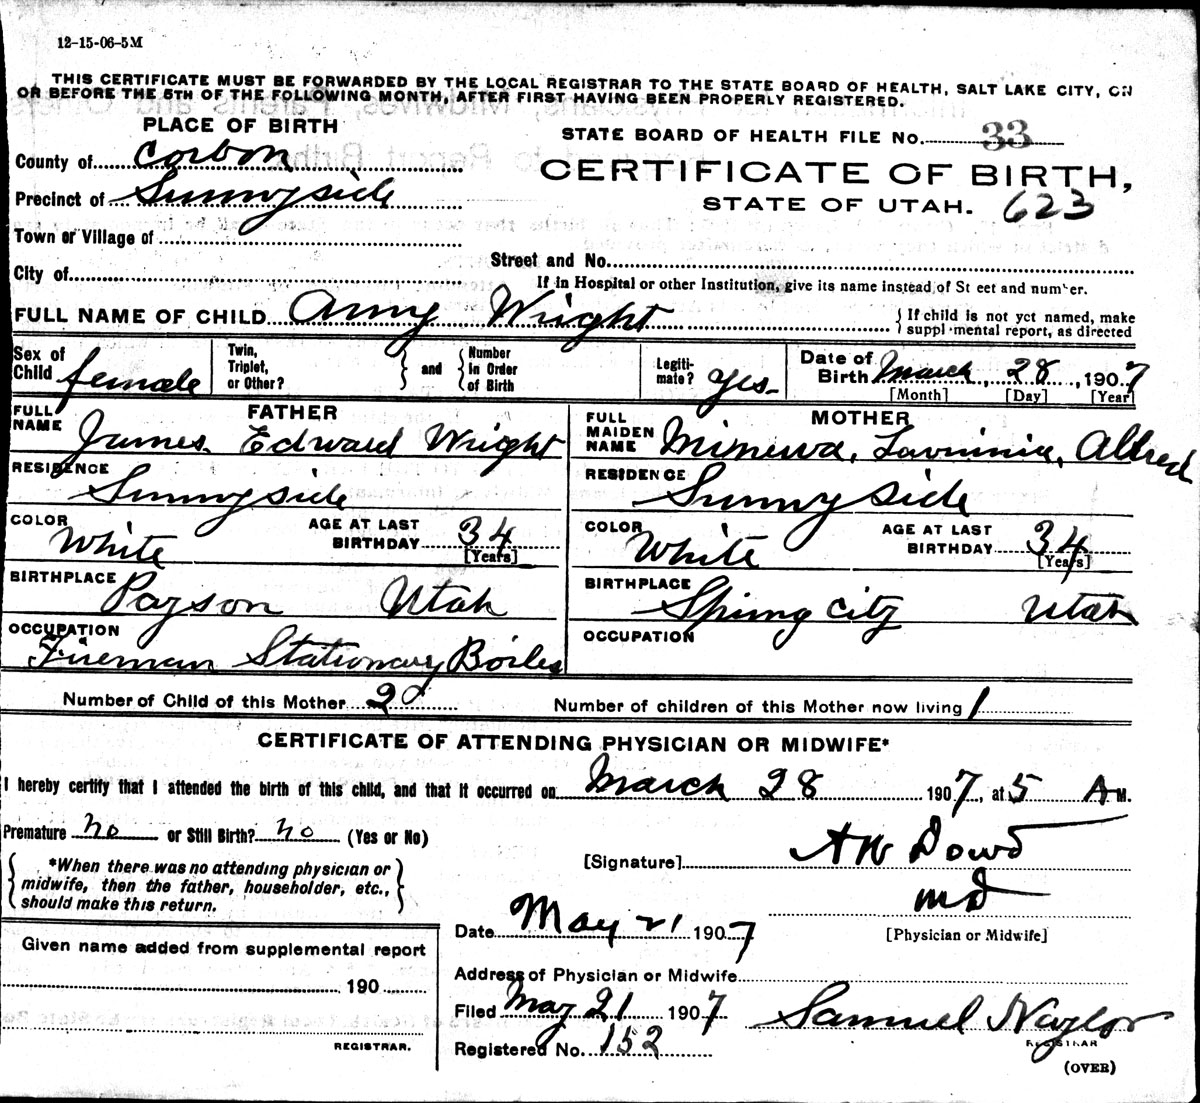 12-15-06-5M
THIS CERTIFICATE MUST BE FORWARDED BY THE LOCAL REGISTRAR TO THE STATE BOARD OF HEALTH, SALT LAKE CITY, ON
OR BEFORE THE 5TH OF THE FOLLOWING MONTH, AFTER FIRST HAVING BEEN PROPERLY REGISTERED.
PLACE OF BIRTH
County of Carbon
Precinct of Sunnyside
Town or Village of
City of
STATE BOARD OF HEALTH FILE No. 33
CERTIFICATE OF BIRTH,
STATE OF UTAH. 623
Street and No.
If in Hospital or other Institution, give its name instead of Street and number.
FULL NAME OF CHILD Amy Wright
If child is not yet named, make
supplemental report, as directed
Sex of Child female
Twin, Triplet, or Other?
and
Number in Order of Birth
Legiti-mate? Yes
Date of Birth March 28, 1907
[Month] [Day] [Year]
FATHER
FULL NAME James Edward Wright
RESIDENCE Sunnyside
COLOR White
AGE AT LAST BIRTHDAY 34 [Years]
BIRTHPLACE Payson Utah
OCCUPATION Fireman Stationary Boiler
MOTHER
FULL MAIDEN NAME Minerva, Lavinnia, Aldred
RESIDENCE Sunnyside
COLOR White
AGE AT LAST BIRTHDAY 34 [Years]
BIRTHPLACE Spring City Utah
OCCUPATION
Number of Child of this Mother 2d
Number of children of this Mother now living 1
CERTIFICATE OF ATTENDING PHYSICIAN OR MIDWIFE*
I hereby certify that I attended the birth of this child, and that it occurred on March 28 1907, at 5 A M.
Premature no or Still Birth? no (Yes or No)
*When there was no attending physician or
midwife, then the father, householder, etc.,
should make this return.
[Signature] A W Dowd
MD
[Physician or Midwife]
Date May 21 1907
Given name added from supplemental report
190
REGISTRAR.
Address of Physician or Midwife
Filed May 21 1907
Samuel Naylor
REGISTRAR
Registered No. 152
(OVER)